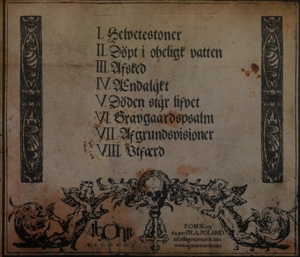 I. Helvetestoner
II. Döpt i oheligt vatten
III. Afsked
IV. Ændalÿkt
V. Döden stär lifvet
VI. Gravgaardspsalm
VII. Afgrundsvisioner
VIII. Utfærd
P.O BOX 171
64-920 PILA, POLAND